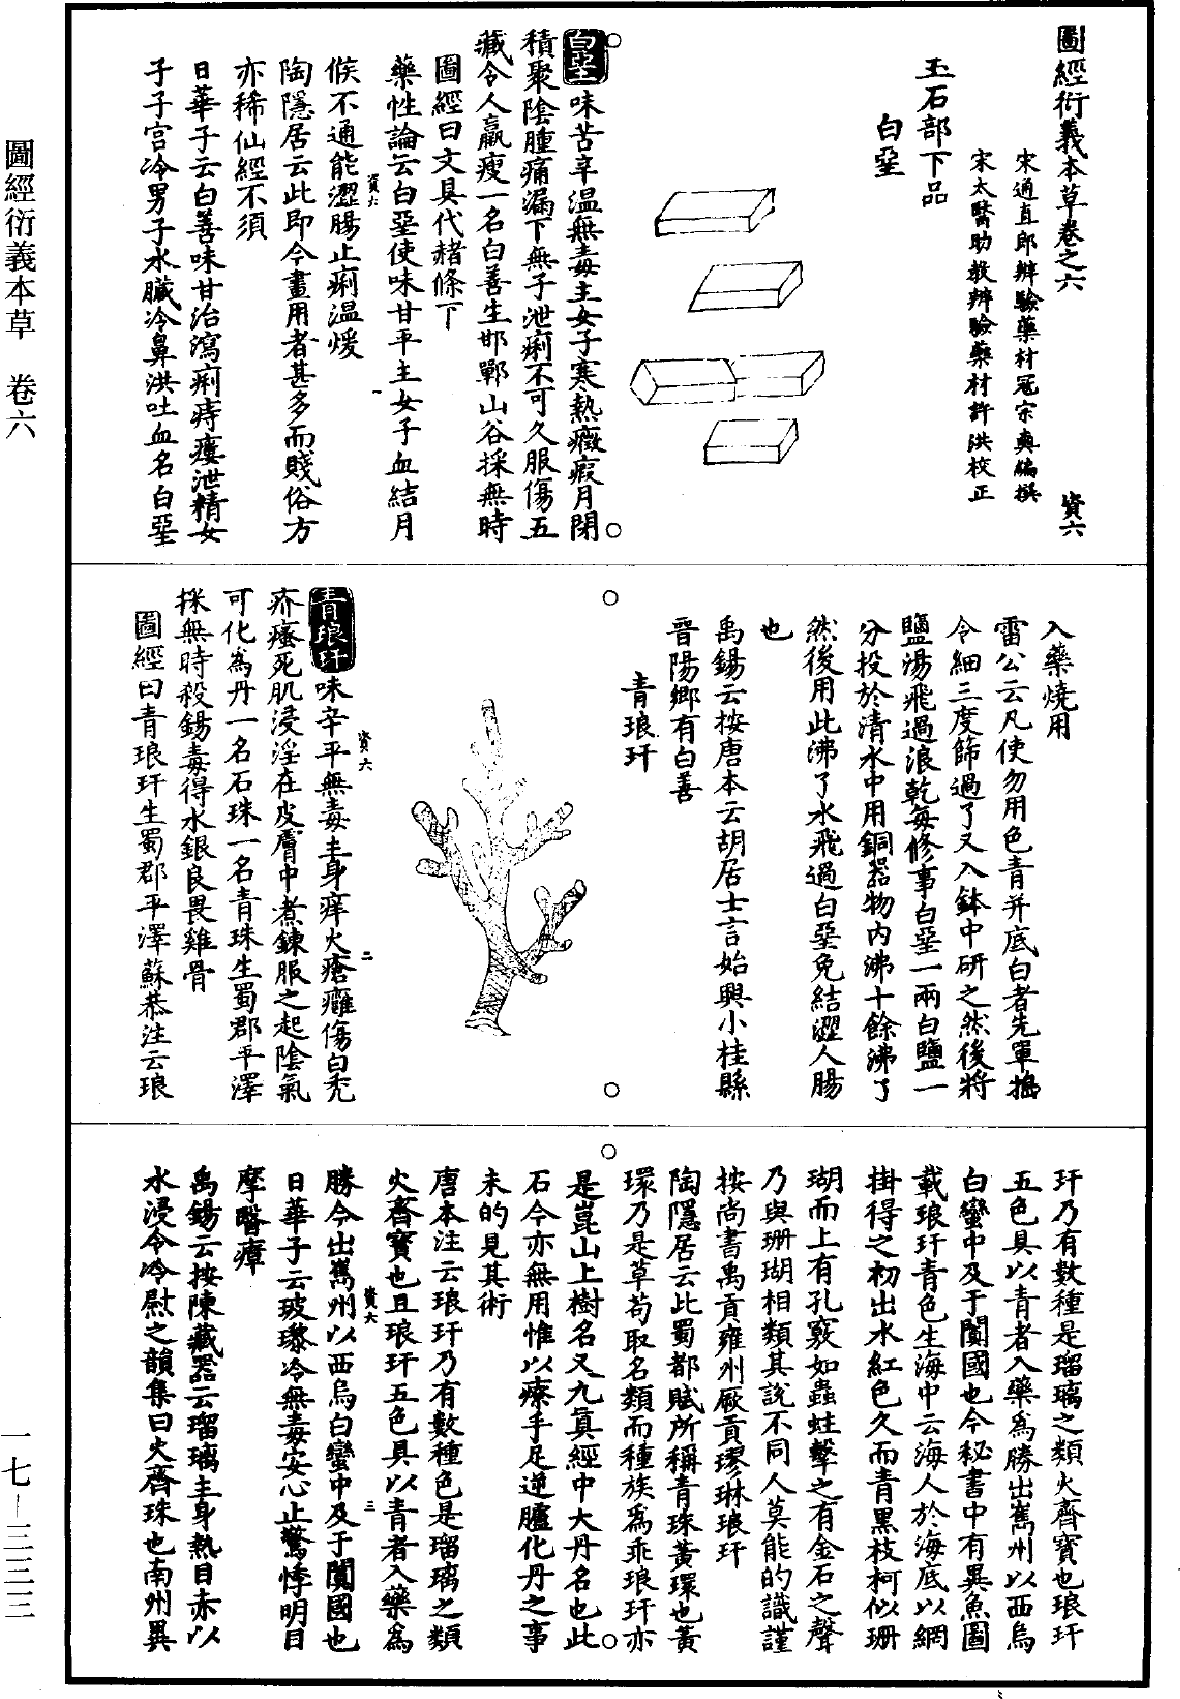 圖經衍義本草卷之六　資六
宋通直郎辨驗藥材寇宗奭編撰
宋太醫助教辨驗藥材許洪校正
玉石部下品
白堊
白堊味苦辛溫無毒主女子寒熱癥瘕月閉
積聚陰腫痛漏下無子泄痢不可久服傷五
藏令人羸瘦一名白善生邯鄲山谷採無時
圖經曰文具代赭條下
藥性論云白堊使味甘平主女子血結月
候不通能澀腸止痢温煖
資六　一
陶隱居云此即今畫用者甚多而賤俗方
亦稀仙經不須
日華子云白善味甘治瀉痢痔瘻泄精女
子子宮冷男子水臟冷鼻洪吐血名白堊
入藥燒用
雷公云凡使勿用色青并底白者先單搗
令細三度篩過了又入鉢中研之然後將
鹽湯飛過浪乾每修事白堊一兩白鹽一
分投於清水中用銅器物內沸十餘沸了
然後用此沸了水飛過白堊免結澀人腸
也
禹錫云按唐本云胡居士言始興小桂縣
晉陽鄉有白善
青琅玕
青琅玕味辛平無毒主身痒火瘡癰傷白禿
資六　二
疥瘙死肌浸淫在皮膚中煮鍊服之起陰氣
可化為丹一名石珠一名青珠生蜀郡平澤
採無時殺錫毒得水銀良畏雞骨
圖經曰青琅玕生蜀郡平澤蘇恭注云琅
玕乃有數種是瑠璃之類火齊寶也琅玕
五色具以青者入藥為勝出嶲州以西烏
白蠻中及于闐國也今秘書中有異魚圖
載琅玕青色生海中云海人於海底以網
掛得之初出水紅色久而青黑枝柯似珊
瑚而上有孔竅如蟲蛀擊之有金石之聲
乃與珊瑚相類其說不同人莫能的識謹
按尚書禹貢雍州厥貢璆琳琅玕
陶隱居云此蜀都賦所稱青珠黃環也黃
環乃是草苟取名類而種族為乖琅玕亦
是崑山上樹名又九真經中大丹名也此
石今亦無用惟以療手足逆臚化丹之事
未的見其術
唐本注云琅玕乃有數種色是瑠璃之類
火齊寶也且琅玕五色具以青者入藥為
資六　三
勝今出嶲州以西烏白蠻中及于闐國也
日華子云玻瓈冷無毒安心止驚悸明目
摩瞖瘴
禹錫云按陳藏器云瑠璃主身熱目赤以
水浸令冷慰之韻集曰火齊珠也南州異
圖經衍義本草　卷六
一七—三三三